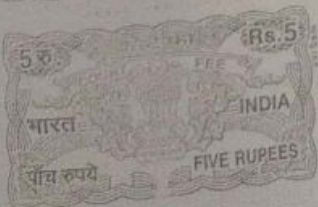 5 रु. Rs. 5
FEE
भारत INDIA
पाँच रुपये FIVE RUPEES